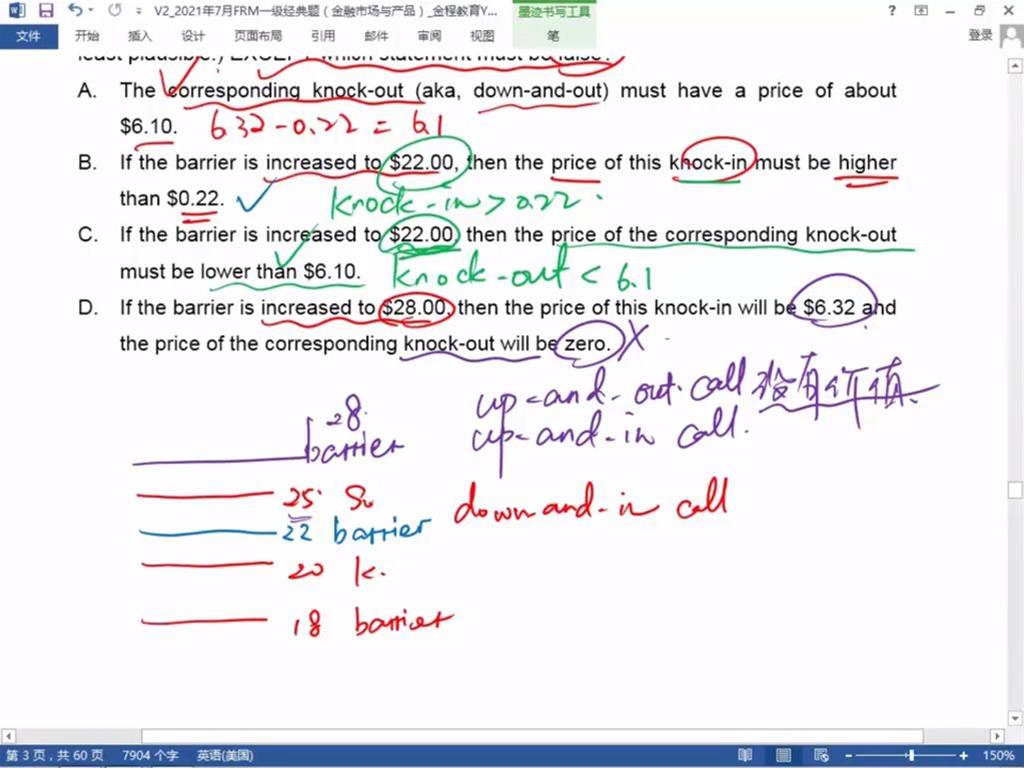 V2_2021年7月FRM一级经典题（金融市场与产品）_金程教育Y...
墨迹书写工具
文件 开始 插入 设计 页面布局 引用 邮件 审阅 视图 笔 登录
least plausible.) EXCEPT which statement must be false?
A. The corresponding knock-out (aka, down-and-out) must have a price of about
$6.10. 6.32-0.22=6.1
B. If the barrier is increased to $22.00, then the price of this knock-in must be higher
than $0.22. knock-in>0.22.
C. If the barrier is increased to $22.00 then the price of the corresponding knock-out
must be lower than $6.10. knock-out<6.1
D. If the barrier is increased to $28.00, then the price of this knock-in will be $6.32 and
the price of the corresponding knock-out will be zero. X
up-and-out call 没有价值.
28 barrier up-and-in call.
25 S0 down and-in call
22 barrier
20 K.
18 barrier
第 3 页，共 60 页 7904 个字 英语(美国) 150%